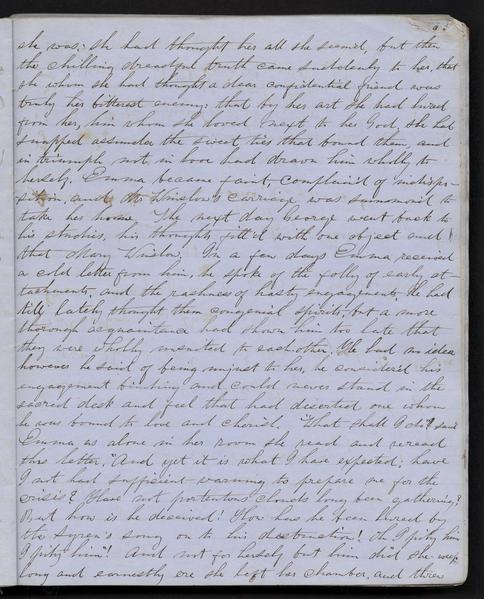 she was: she had thought her all she seem'd, but then
the chilling dreadful truth came suddenly to her, that
she whom she had thought a dear confidential friend was
truly her bitterest enemy; that by her art she had lured
from her, him whom she loved next to her God, she had
snapped assunder the sweet ties that bound them, and
in triumph, not in love had drawn him wholly to
herself. Emma became faint, complain'd of indispo-
sition, and Winslow's carriage was summon'd to
take her home. The next day George went back to
his studies, his thoughts fill'd with one object and
that Mary Winslow. In a few days Emma received
a cold letter from him, he spoke of the folly of early at-
tachments, and the rashness of hasty engagements. He had
till lately thought them congenial spirits, but a more
thorough acquaintance had shown him too late that
they were wholly unsuited to eachother. He had no idea
however he said of being unjust to her, he consider'd his
engagement binding and could never stand in the
sacred desk and feel that had deserted one whom
he was bound to love and cherish. "What shall I do"? said
Emma as alone in her room she read and reread
this letter. "And yet it is what I have expected; have
I not had sufficient warning to prepare me for the
crisis? Have not portentous clouds long been gathering?
But how is he deceived! How has he been lured by
the Syren's song on to his destruction! Oh I pity him
I pity him"! And not for herself but him did she weep
long and earnestly ere she left her chamber, and then